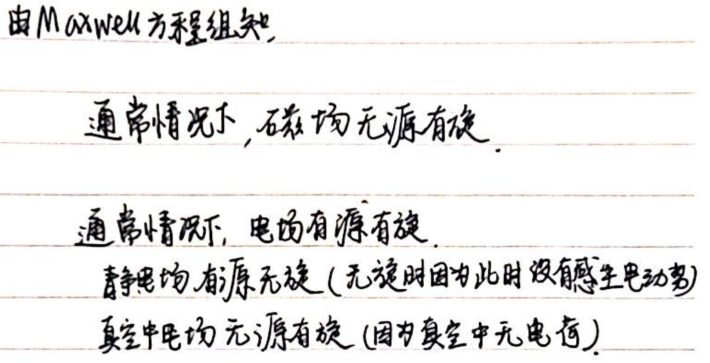 由Maxwell方程组知,
通常情况下,磁场无源有旋.
通常情况下,电场有源有旋.
静电场有源无旋(无旋时因为此时没有感生电动势)
真空中电场无源有旋(因为真空中无电荷)